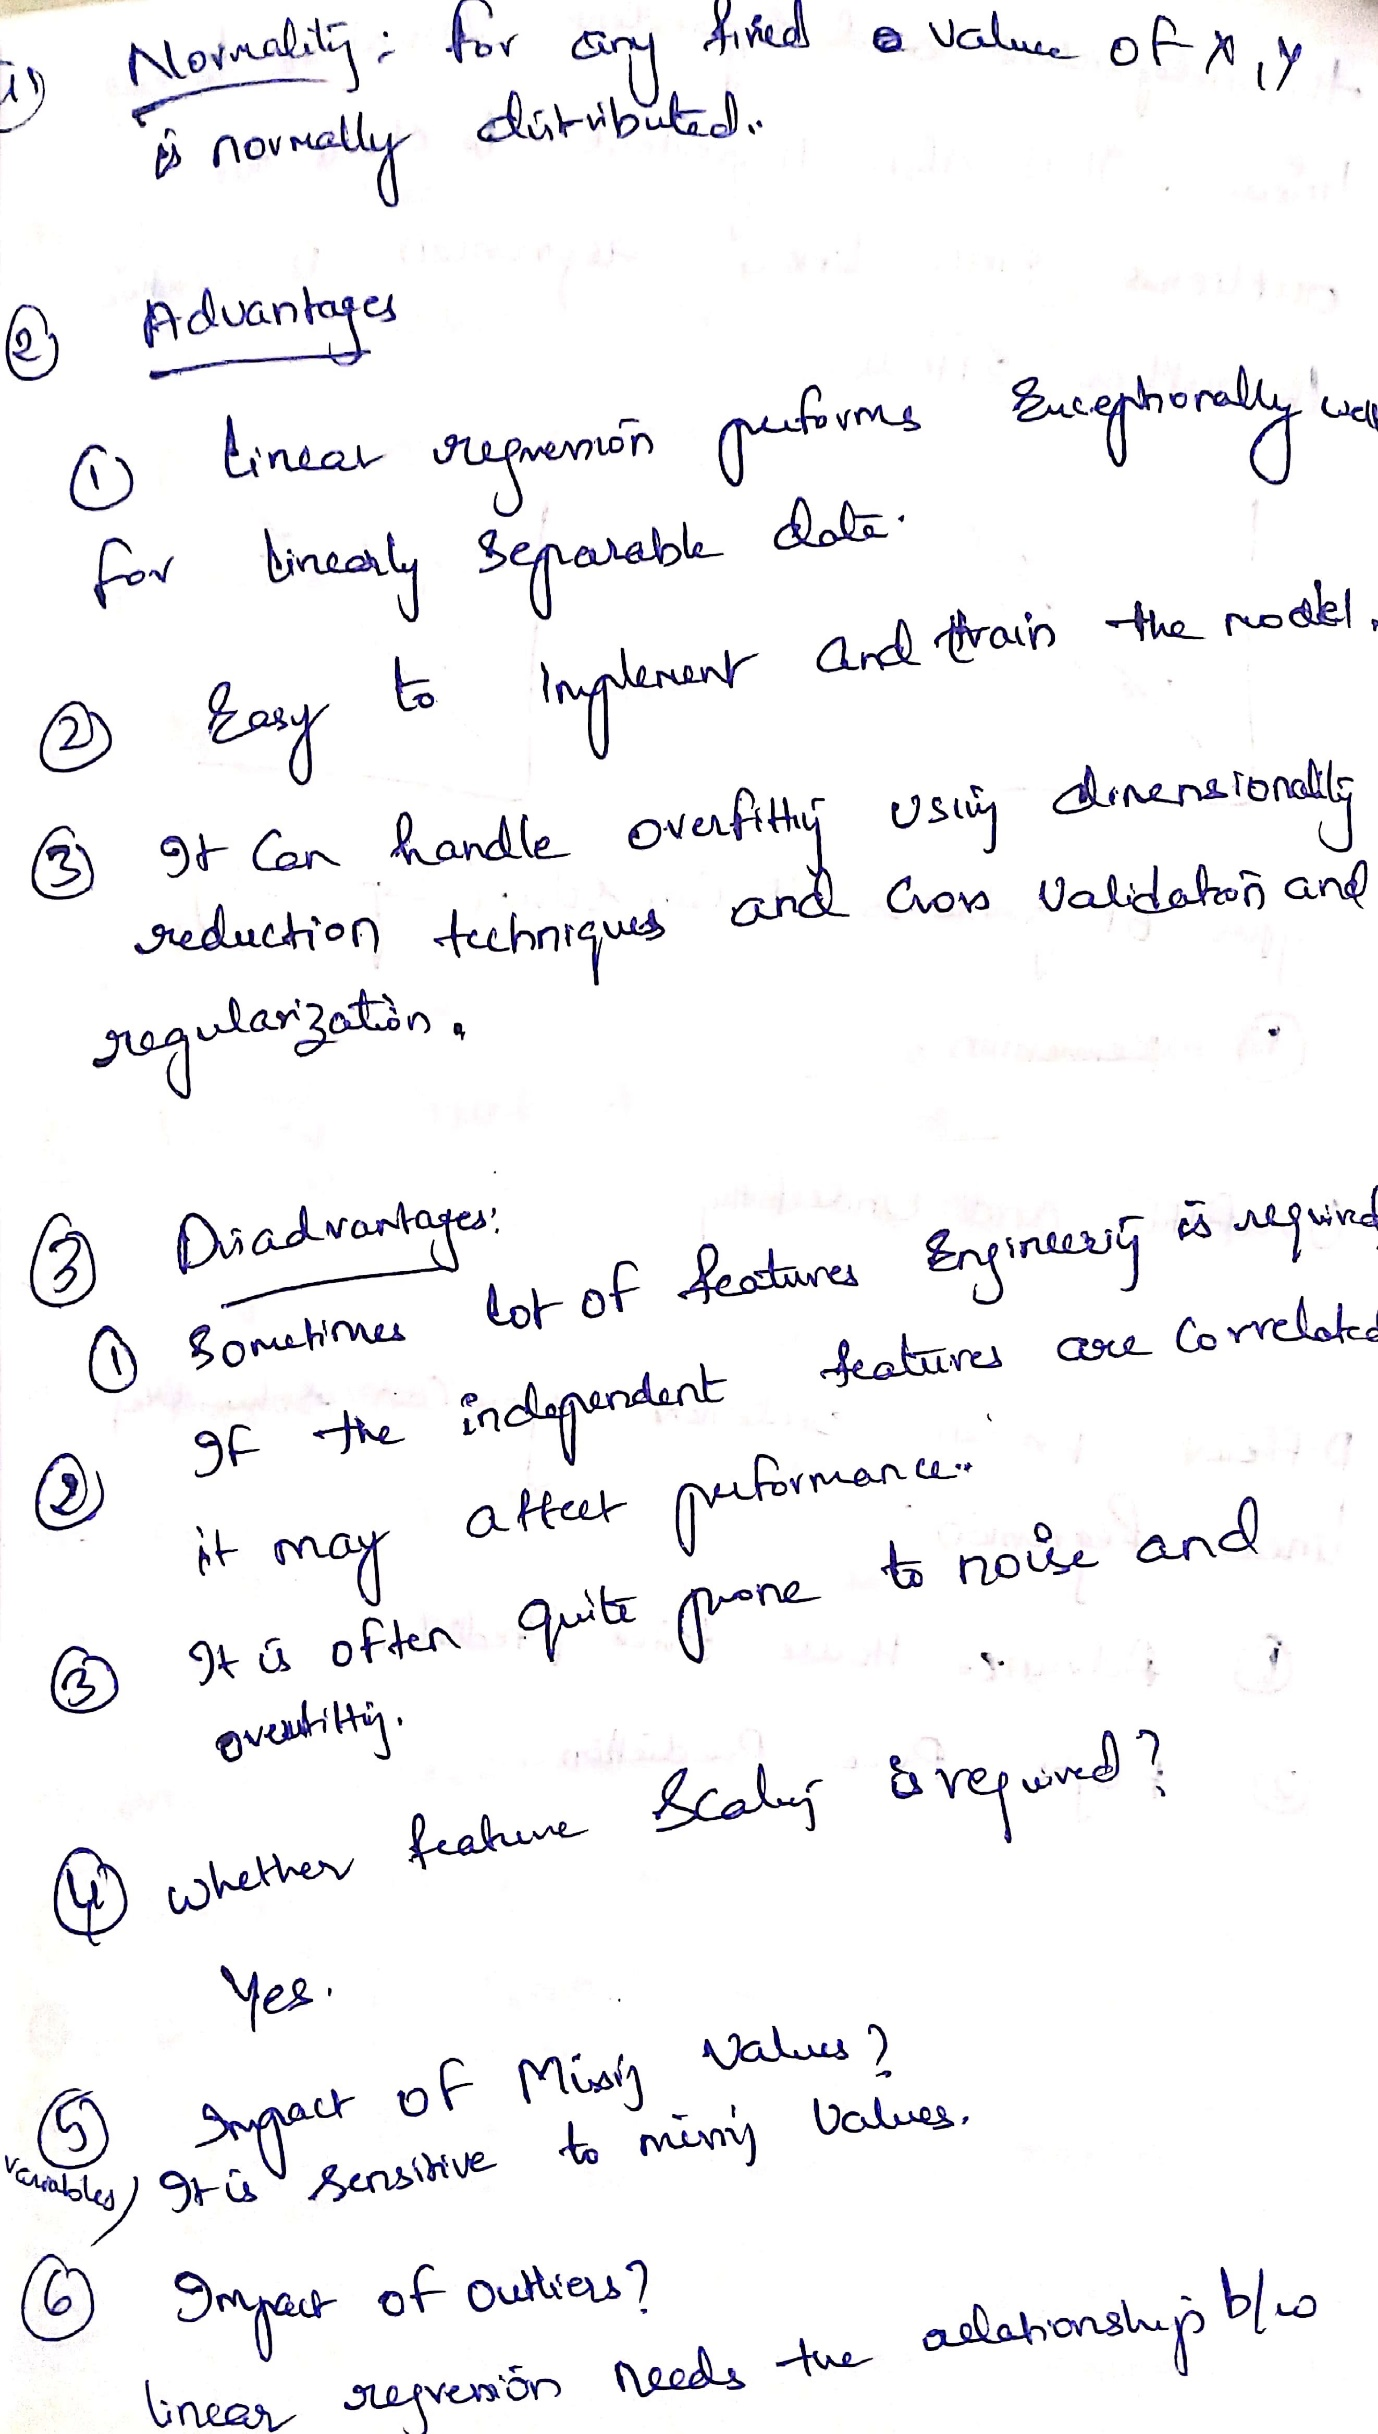 ii) Normality: for any fixed value of X, Y
is normally distributed..
② Advantages
① Linear regression performs Exceptionally well
for linearly separable data.
② Easy to Implement and train the model.
③ It Can handle overfitting using dimensionality
reduction techniques and cross validation and
regularization.
③ Disadvantages:
① Sometimes lot of features Engineering is required
② If the independent features are correlated
it may affect performance..
③ It is often quite prone to noise and
overfitting.
④ Whether feature Scaling is required?
Yes.
⑤ Impact of Missing Values?
It is sensitive to missing Values.
variables)
⑥ Impact of outliers?
linear regression needs the relationship b/w